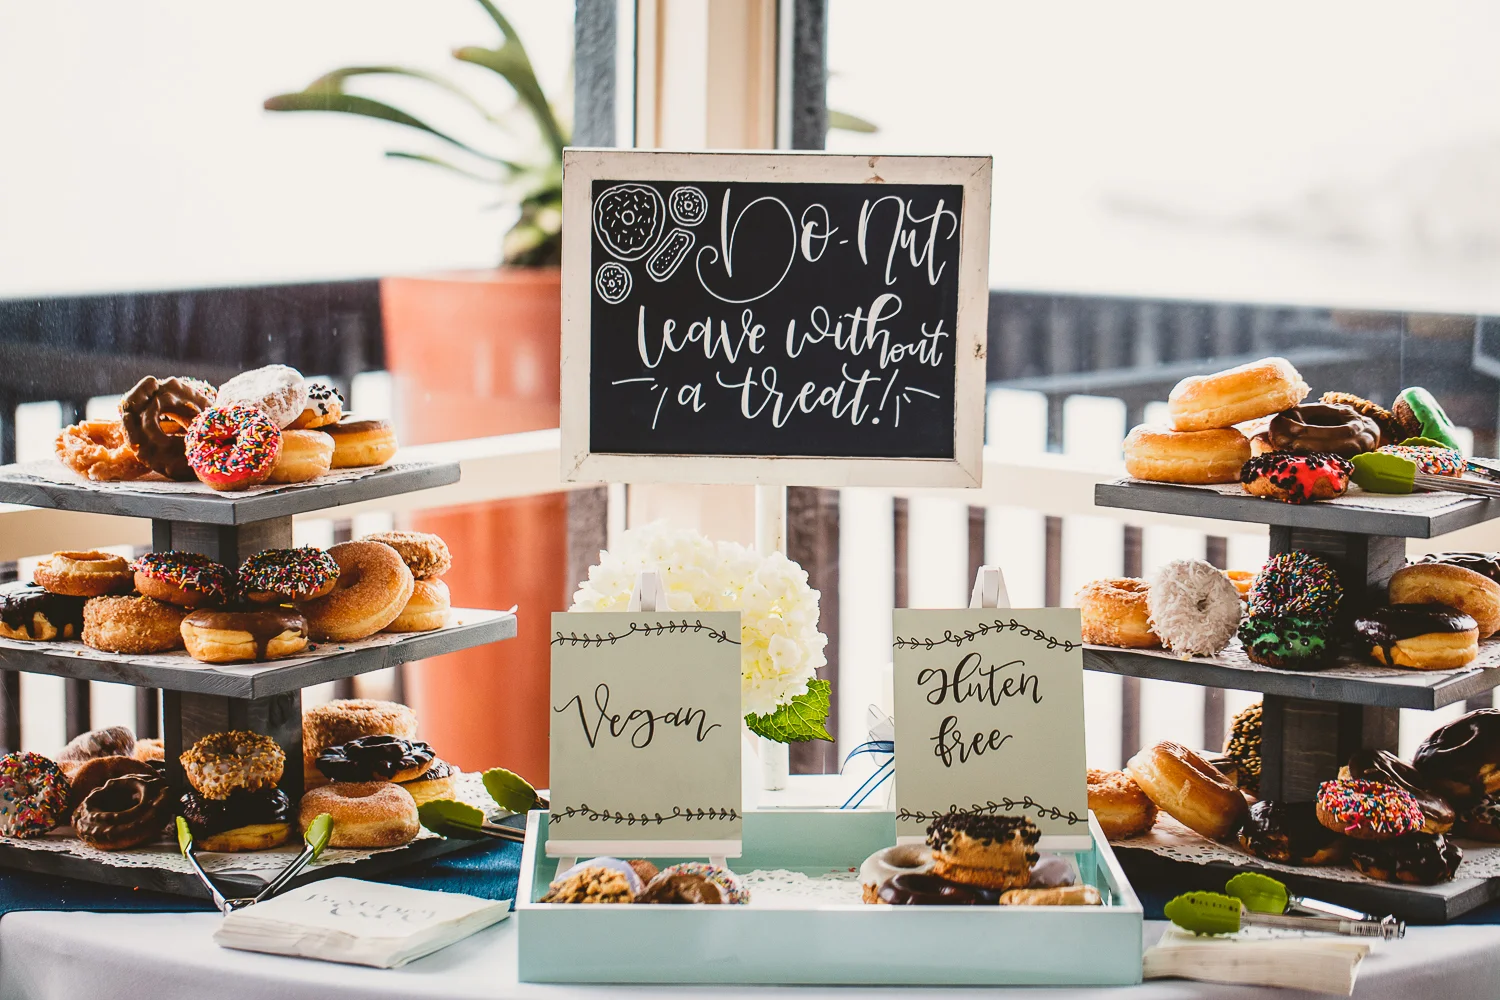 Do-Nut
leave without
a treat!
Vegan
gluten
free